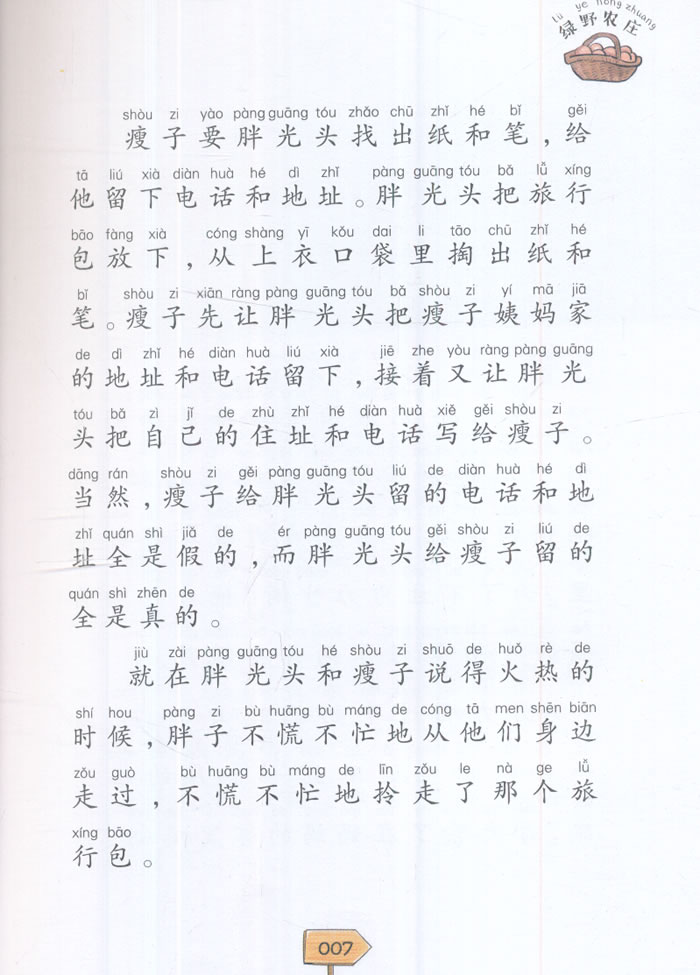 lù yě nóng zhuāng
绿野农庄
shòu zi yào pàng guāng tóu zhǎo chū zhǐ hé bǐ gěi
瘦子要胖光头找出纸和笔，给
tā liú xià diàn huà hé dì zhǐ pàng guāng tóu bǎ lǚ xíng
他留下电话和地址。胖光头把旅行
bāo fàng xià cóng shàng yī kǒu dai li tāo chū zhǐ hé
包放下，从上衣口袋里掏出纸和
bǐ shòu zi xiān ràng pàng guāng tóu bǎ shòu zi yí mā jiā
笔。瘦子先让胖光头把瘦子姨妈家
de dì zhǐ hé diàn huà liú xià jiē zhe yòu ràng pàng guāng
的地址和电话留下，接着又让胖光
tóu bǎ zì jǐ de zhù zhǐ hé diàn huà xiě gěi shòu zi
头把自己的住址和电话写给瘦子。
dāng rán shòu zi gěi pàng guāng tóu liú de diàn huà hé dì
当然，瘦子给胖光头留的电话和地
zhǐ quán shì jiǎ de ér pàng guāng tóu gěi shòu zi liú de
址全是假的，而胖光头给瘦子留的
quán shì zhēn de
全是真的。
jiù zài pàng guāng tóu hé shòu zi shuō de huǒ rè de
就在胖光头和瘦子说得火热的
shí hou pàng zi bù huāng bù máng de cóng tā men shēn biān
时候，胖子不慌不忙地从他们身边
zǒu guò bù huāng bù máng de līn zǒu le nà ge lǚ
走过，不慌不忙地拎走了那个旅
xíng bāo
行包。
007